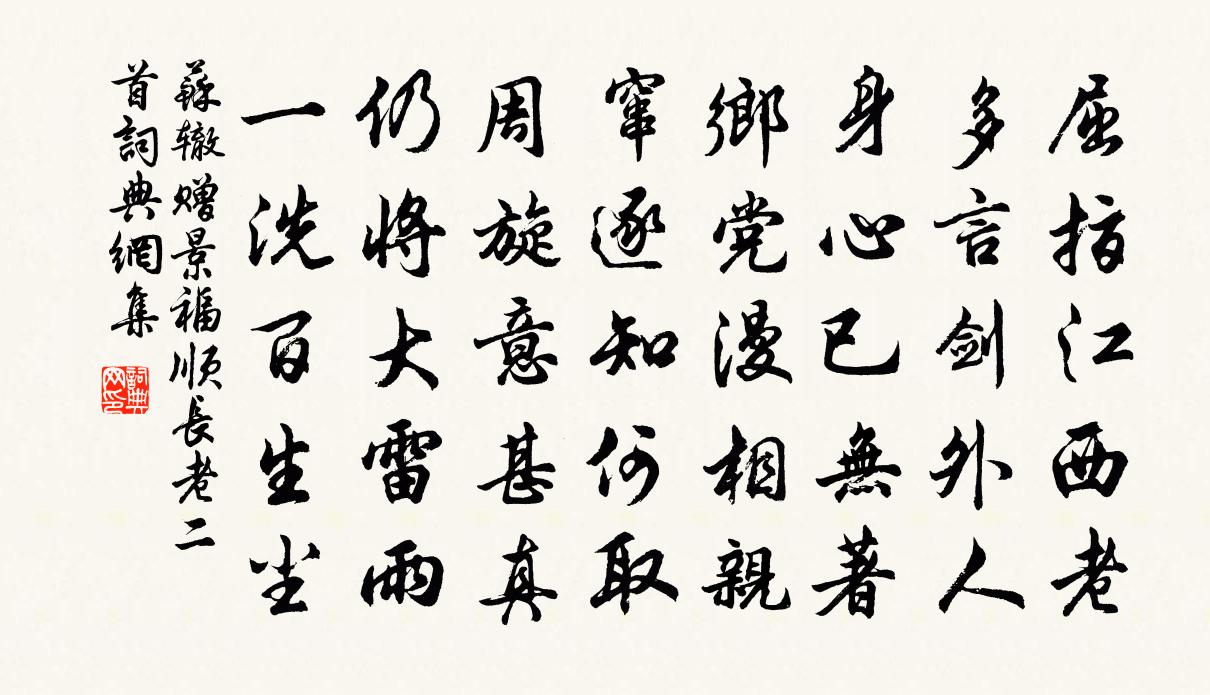 屈指江西老
多言剑外人
身心已無著
鄉党漫相親
窜逐知何取
周旋意甚真
仍將大雷雨
一洗百生尘
蘇辙赠景福順長老二
首詞典網集
詞典
网印